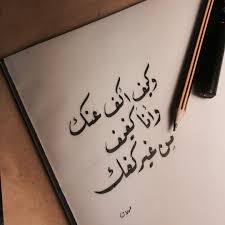 وكيف أكف عنك
وأنا كفيف
من غير كفك